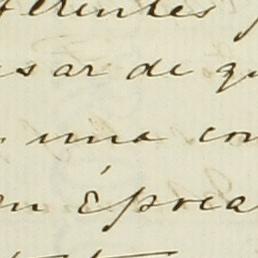 ferentes
sar de qu
una con
en época